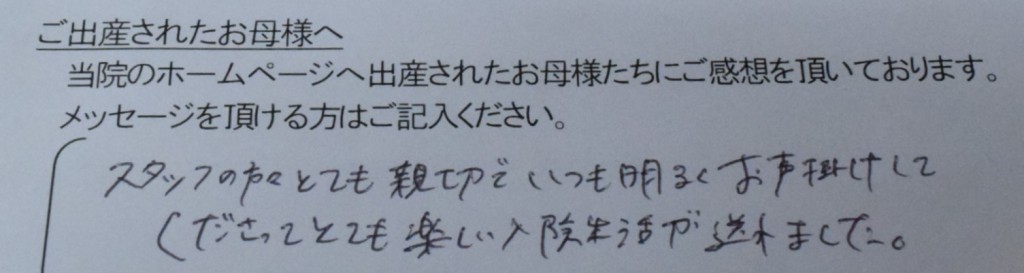 ご出産されたお母様へ
当院のホームページへ出産されたお母様たちにご感想を頂いております。
メッセージを頂ける方はご記入ください。
スタッフの方々とても親切でいつも明るくお声掛けして
くださってとても楽しい入院生活が送れました。